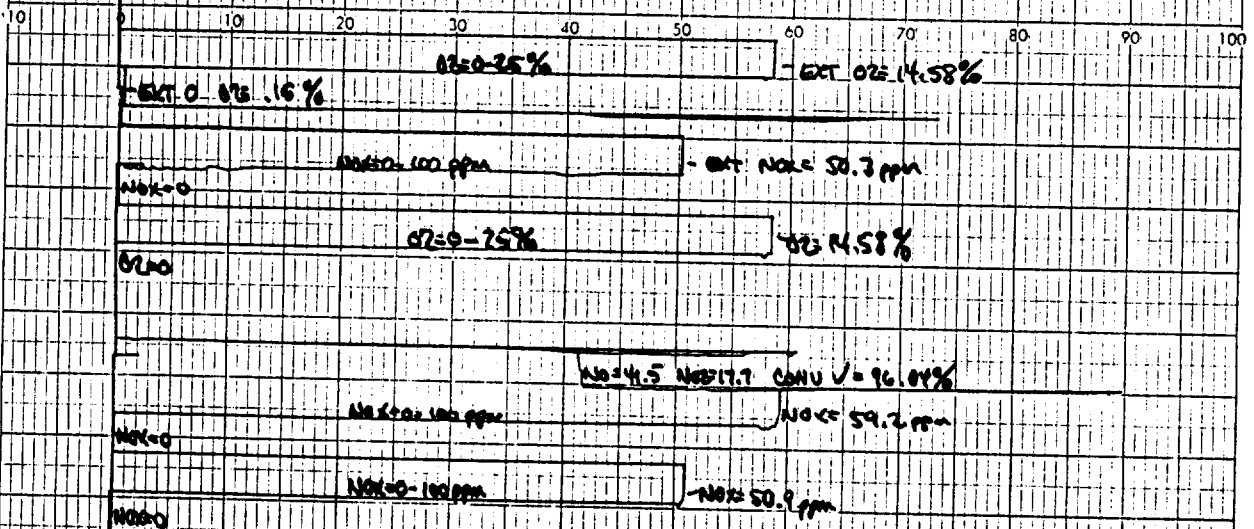 -10 0 10 20 30 40 50 60 70 80 90 100
O2=0-25% - EXT O2= 14.58%
- EXT O O2= .16 %
NOX=0-100 ppm - EXT NOX= 50.3 ppm
NOX=0
O2=0-25% O2= 14.58%
O2=0
NO=41.5 NO2=17.7 CONV √ = 96.04%
NOX=0-100 ppm NOX= 59.2 ppm
NOX=0
NOX=0-100 ppm -NOX= 50.9 ppm
NOX=0